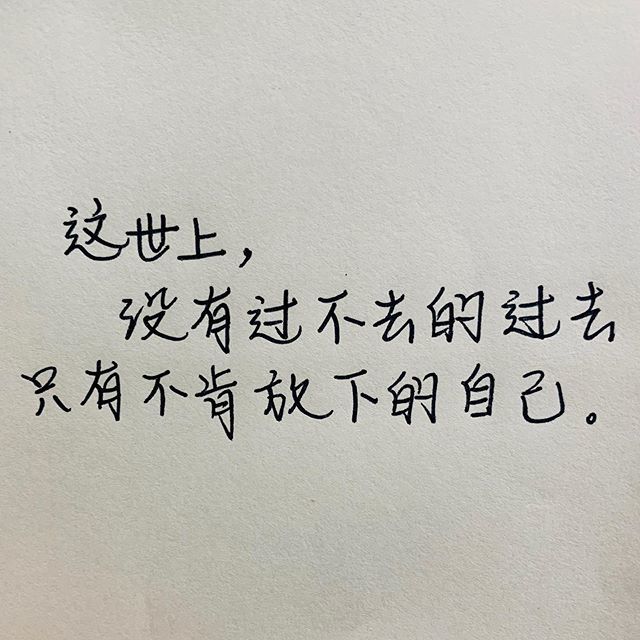 这世上,
没有过不去的过去
只有不肯放下的自己。